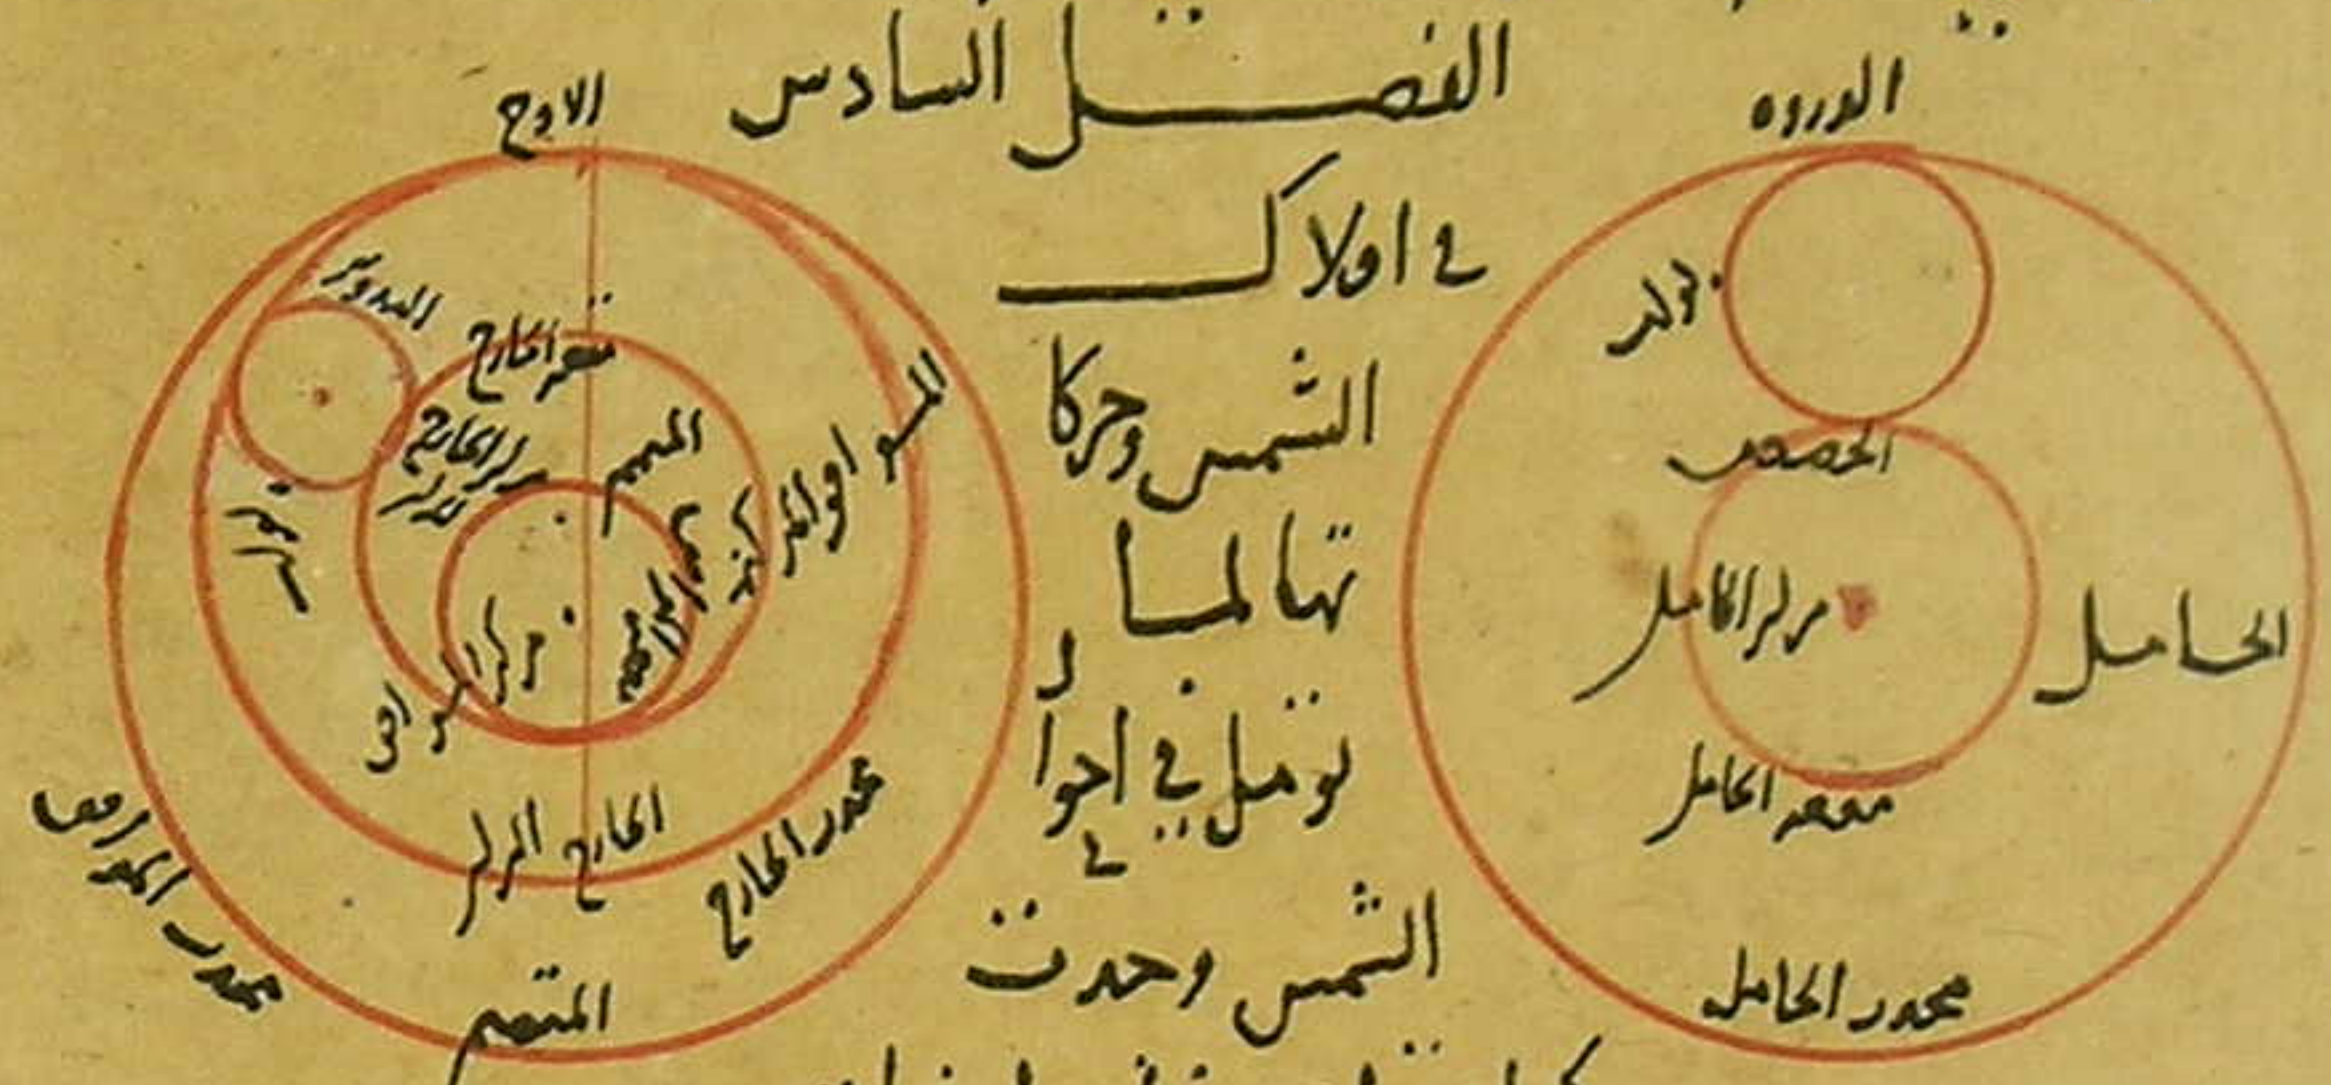 الفصل السادس
في افلاك
الشمس وحركا
تها لما
تومل في احوال
الشمس وجدت
الذروه
الحضيض
مركز الحامل
الحامل
مقعر الحامل
محدب الحامل
الاوج
التدوير
مقعر الخارج
مركز الخارج
المتمم
الموافق المركز
مركز الموافق
مقعر الموافق
الخارج المركز
محدب الخارج
محدب الموافق
المتمم